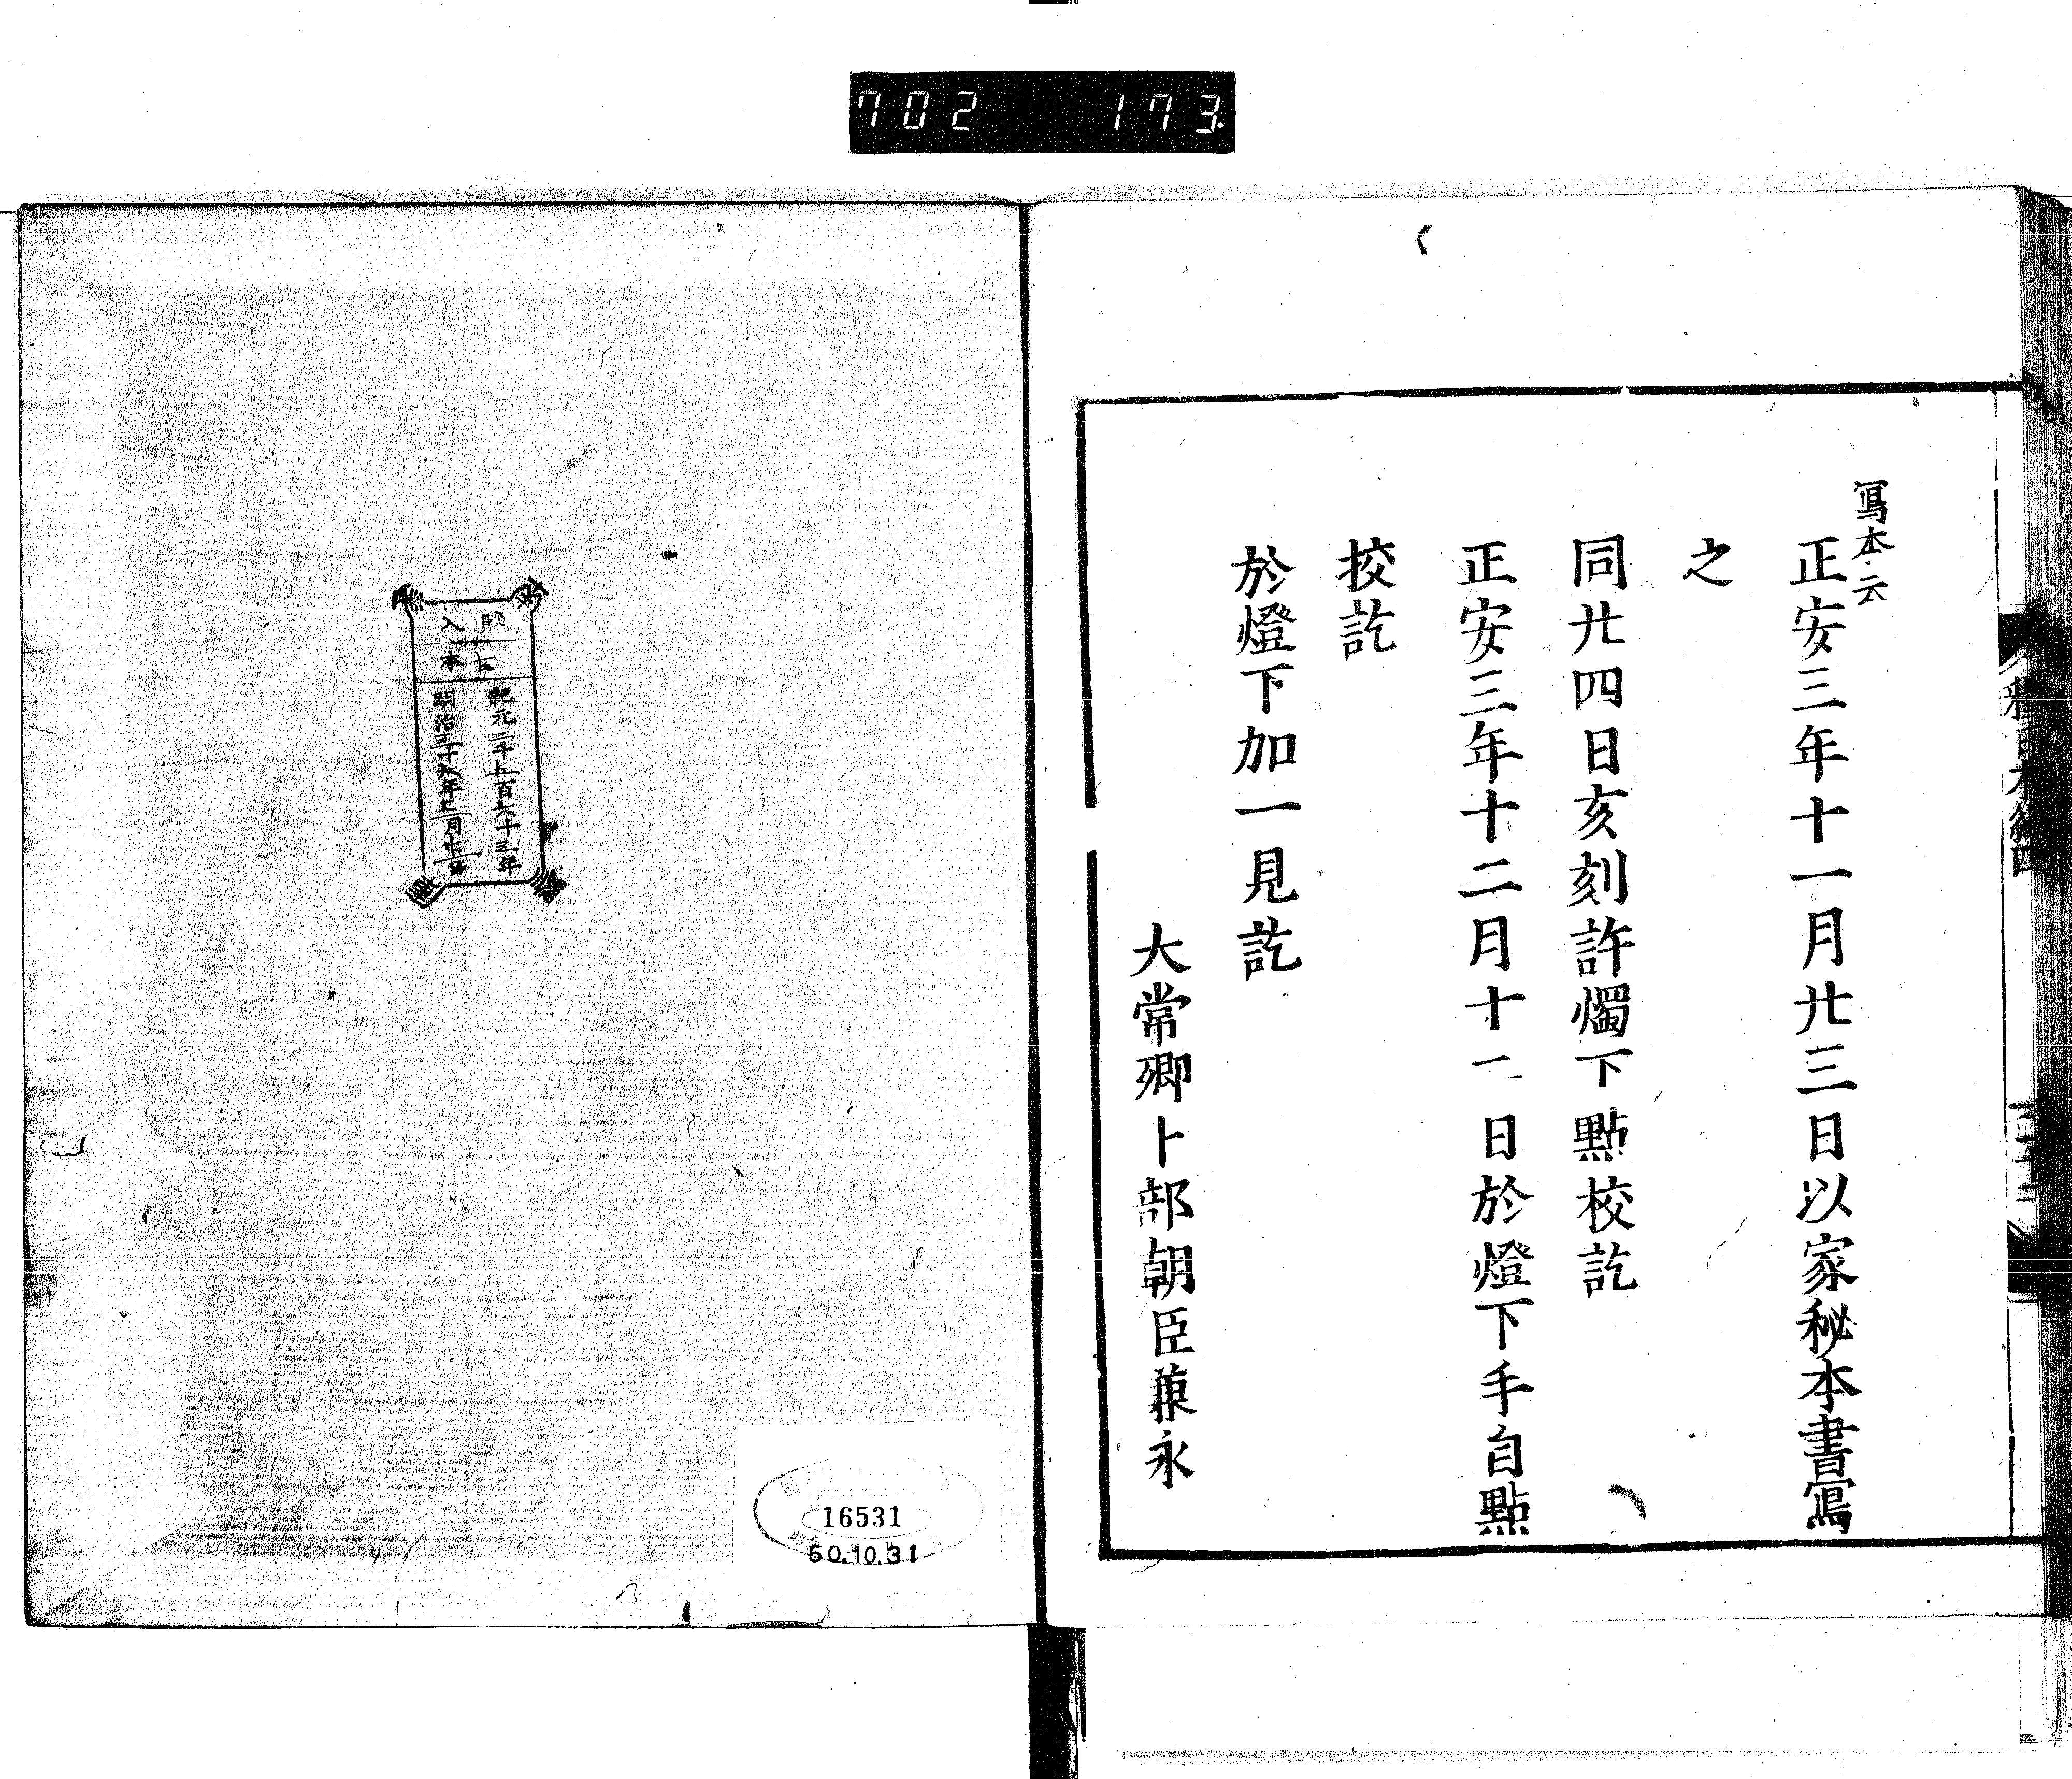 702 173.
寫本云
正安三年十一月廿三日以家秘本書寫
之
同廿四日亥刻許燭下點校訖
正安三年十二月十一日於燈下手自點
挍訖
於燈下加一見訖
大常卿卜部朝臣兼永
紀元二千五百六十三年
16531
50.10.31